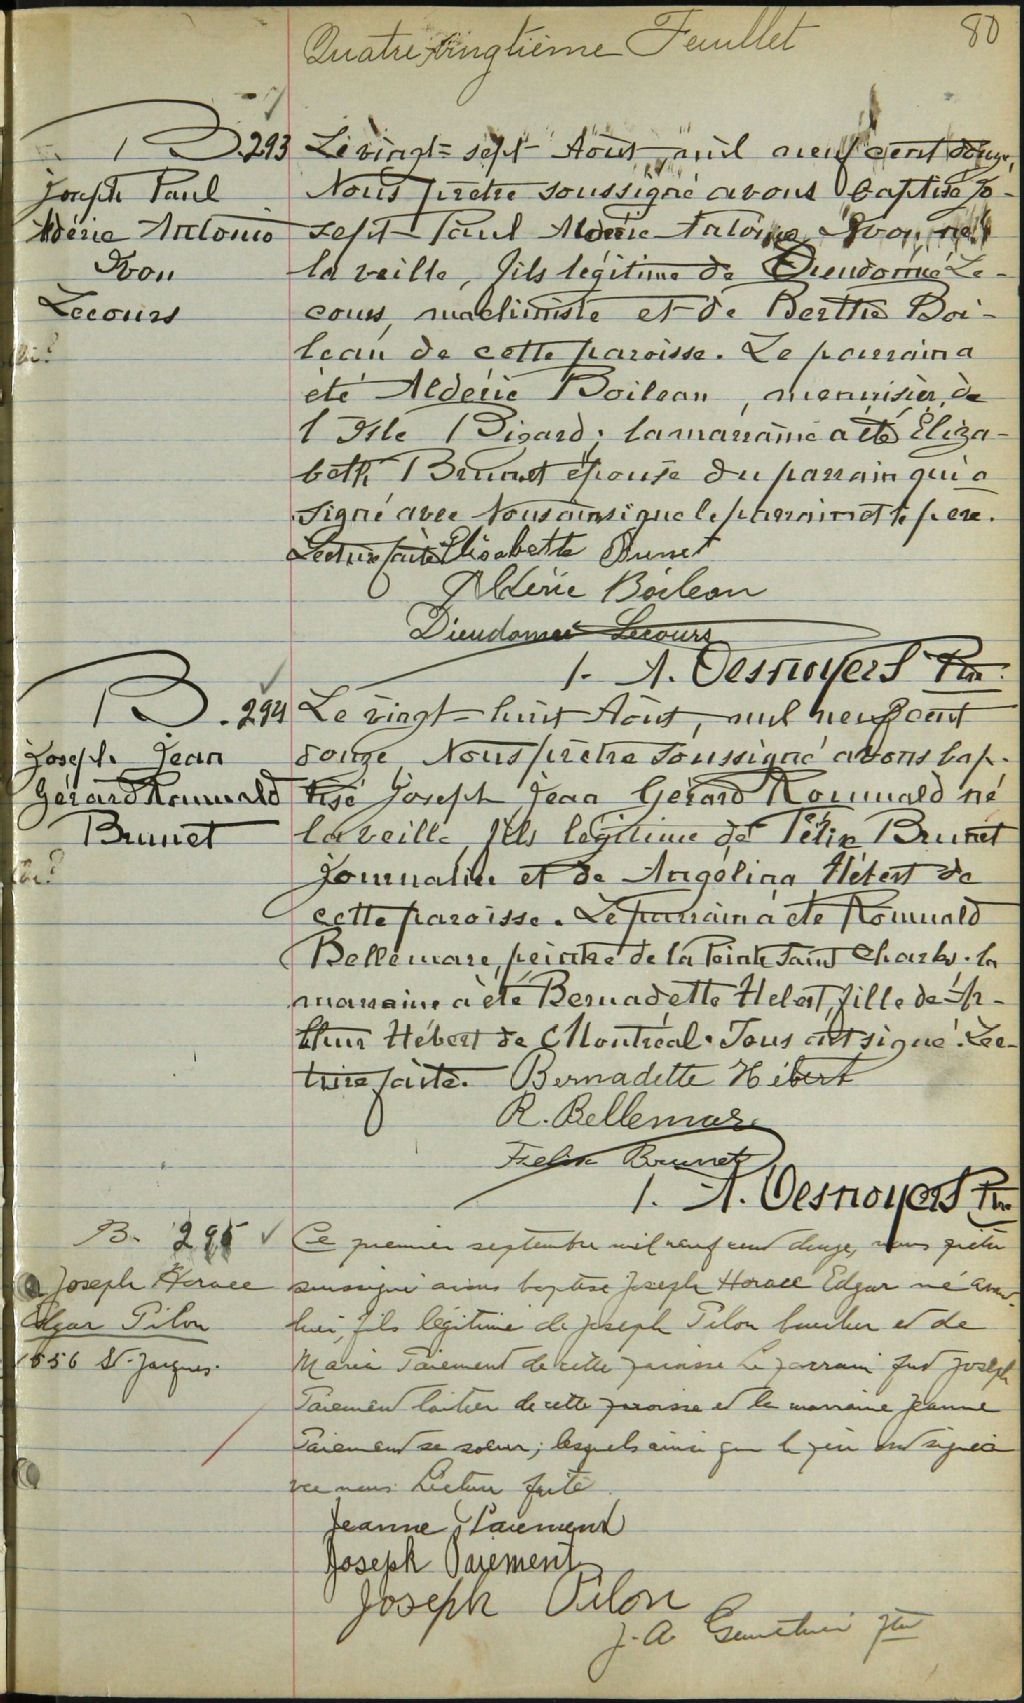 Quatre-vingtième Feuillet 80
B. 293
Joseph Paul
Aldéric Antonio
Yvon
Lecours
Le vingt-sept Août mil neuf cent douze,
Nous prêtre soussigné avons baptisé Jo-
seph Paul Aldéric Antonio Yvon né
la veille, fils légitime de Dieudonné Le-
cours, machiniste et de Berthe Boi-
leau de cette paroisse. Le parrain a
été Aldéric Boileau, menuisier, de
l'Isle Bizard; la marraine a été Éliza-
beth Brunet épouse du parrain qui a
signé avec Nous ainsi que le parrain et le père.
Lecture faite. Elisabette Brunet
Aldéric Boileau
Dieudonné Lecours
J. A. Desnoyers Ptre.
B. 294
Joseph Jean
Gérard Romuald
Brunet
Le vingt-huit Août, mil neuf cent
douze, Nous prêtre soussigné avons bap-
tisé Joseph Jean Gérard Romuald né
la veille, fils légitime de Félix Brunet
journalier et de Angélina Hébert de
cette paroisse. Le parrain a été Romuald
Bellemare, peintre de la Pointe Saint Charles. la
marraine a été Bernadette Hebert, fille de Ar-
thur Hébert de Montréal. Tous ont signé. Lec-
ture faite. Bernadette Hébert
R. Bellemare
Felix Brunet
J. A. Desnoyers Ptre
B. 295
Joseph Horace
Edgar Pilon
1556 St-Jacques.
Ce premier septembre mil neuf cent douze, nous prêtre
soussigné avons baptisé Joseph Horace Edgar né aujour-
hui, fils légitime de Joseph Pilon boucher et de
Maria Paiement de cette paroisse Le parrain fut Joseph
Paiement laitier de cette paroisse et la marraine Jeanne
Paiement sa soeur; lesquels ainsi que le père ont signé a
vec nous. Lecture faite.
Jeanne Paiement
Joseph Paiement
Joseph Pilon
J. A. ptre